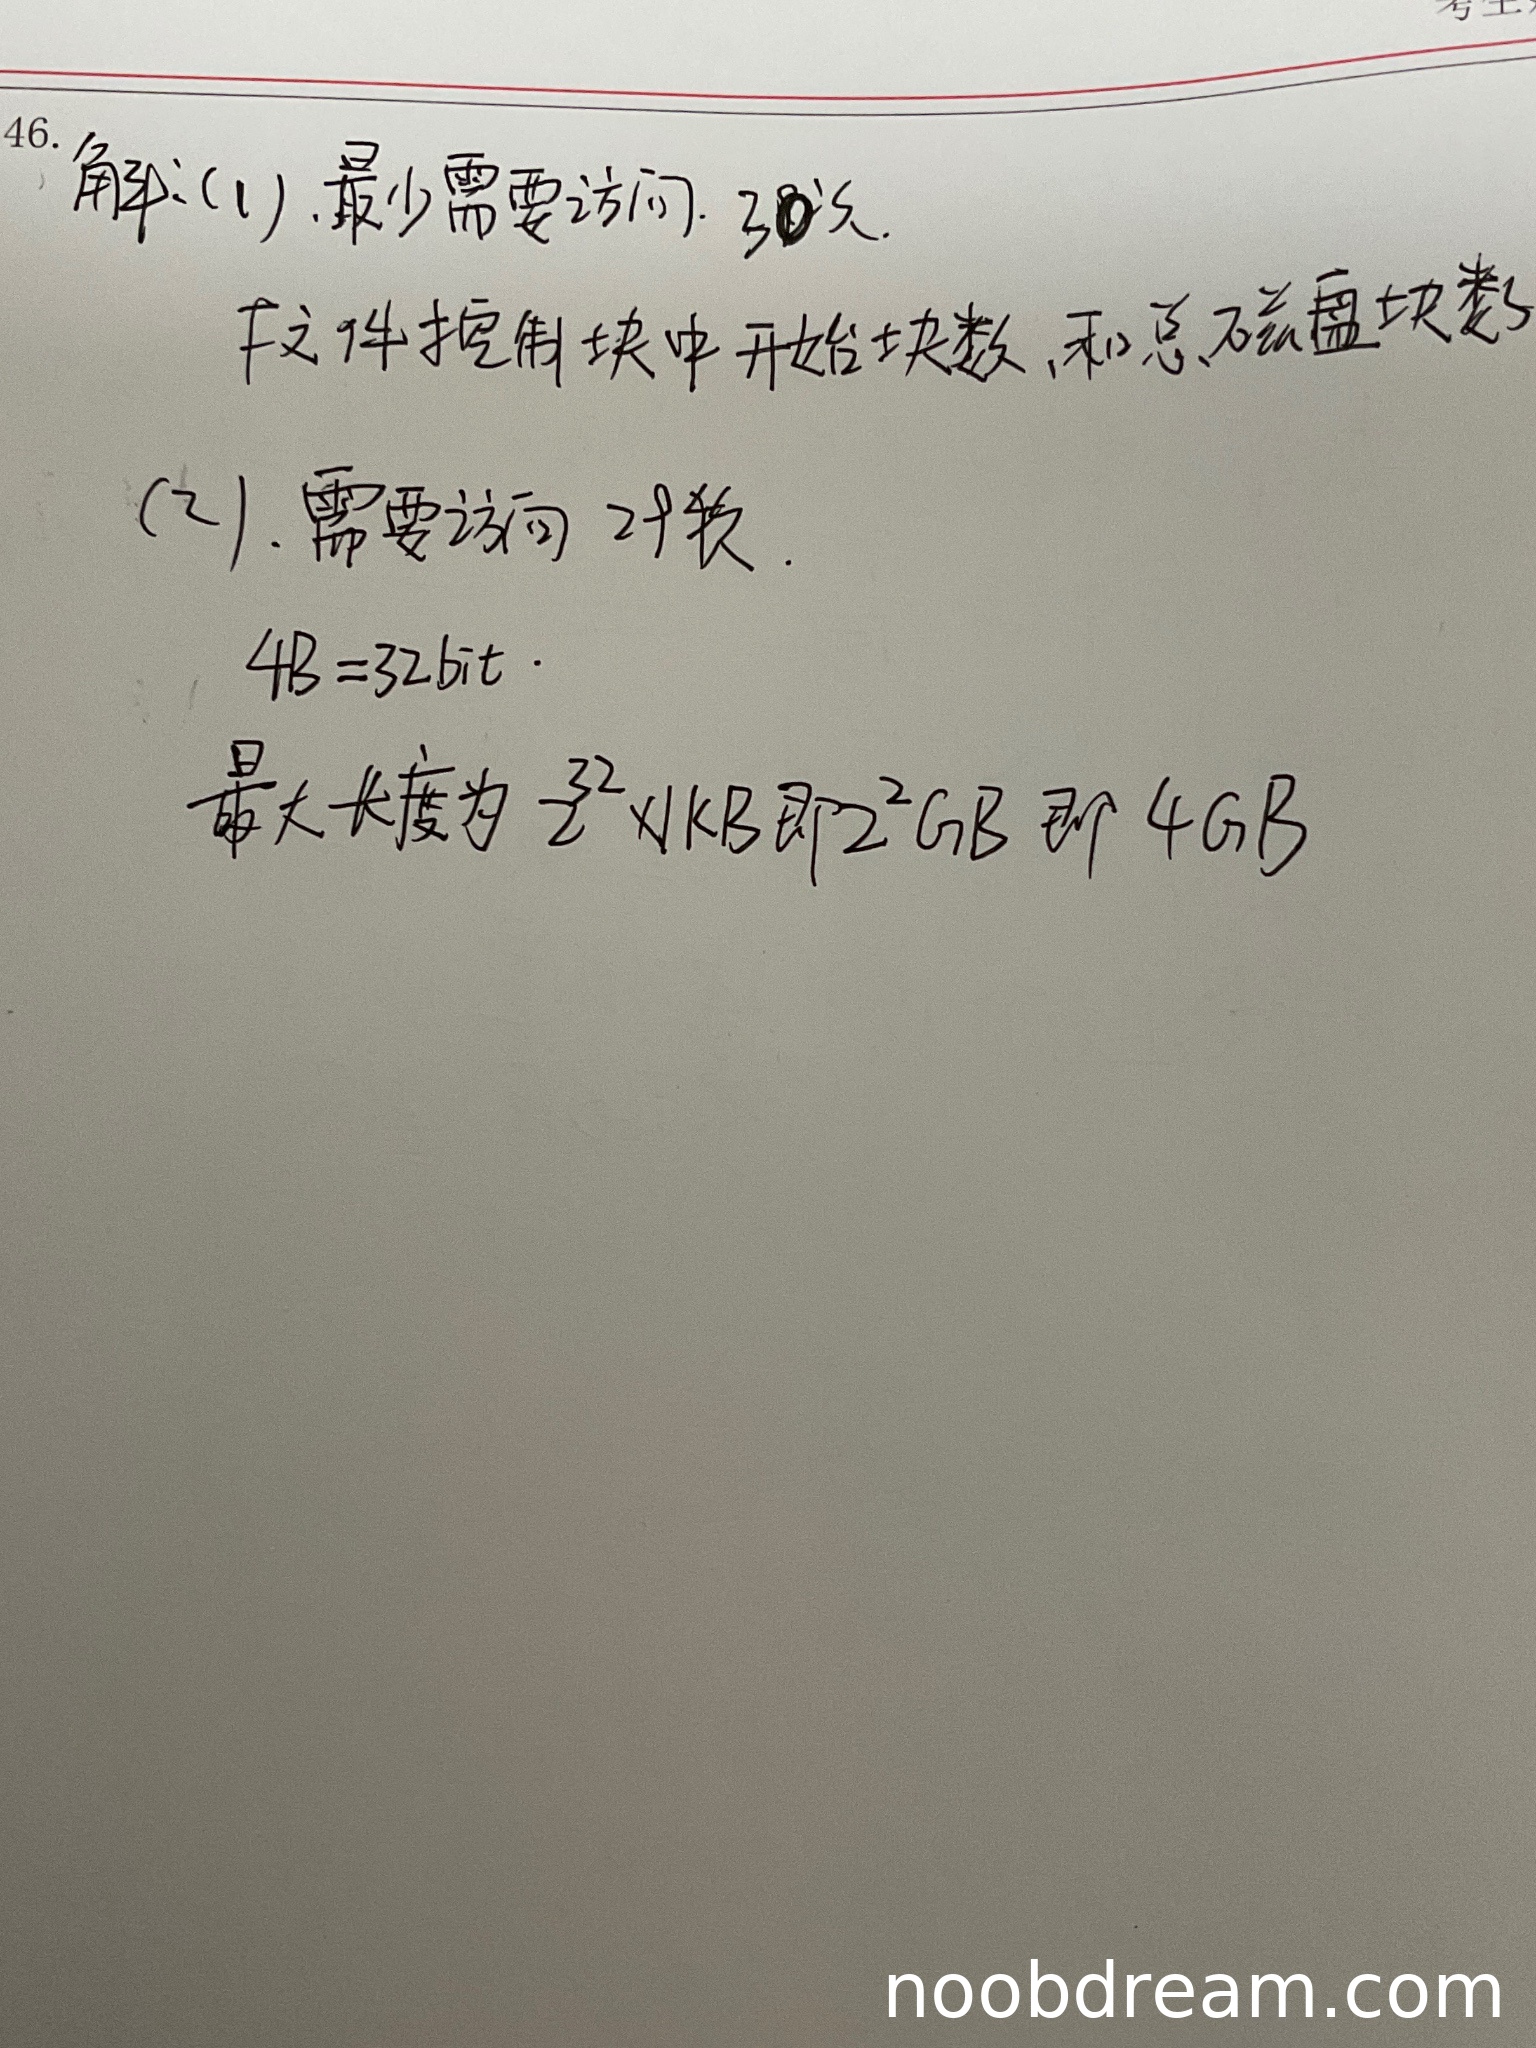 考生
46.
解:(1).最少需要访问.30次.
F文件控制块中开始块数、和总磁盘块数
(2).需要访问 29次.
4B=32bit.
最大长度为 2^32×1KB即2^2GB 即 4GB
noobdream.com